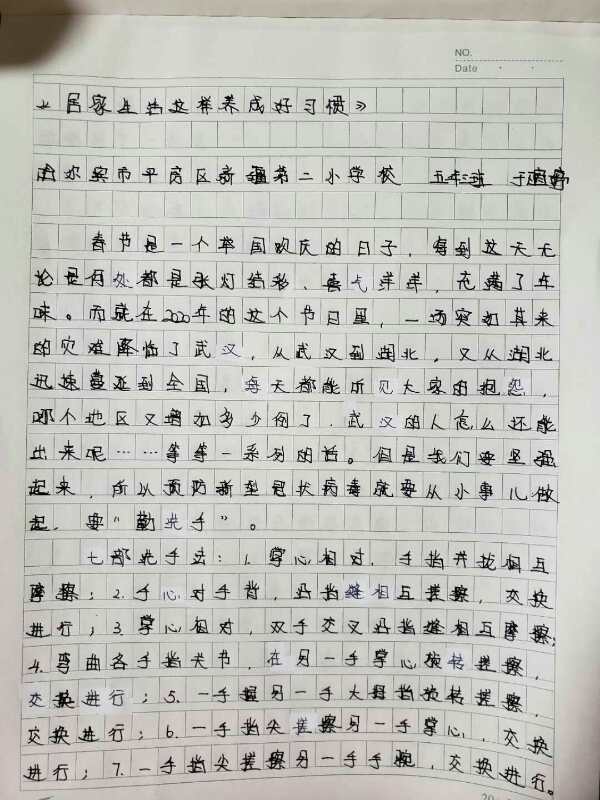 NO.
Date
《居家生活这样养成好习惯》
哈尔滨市平房区新疆第二小学校 五年三班 于
春节是一个举国欢庆的日子，每到这天无
论是何处都是张灯结彩、喜气洋洋，充满了年
味。而就在2020年的这个节日里，一场突如其来
的灾难降临了武汉，从武汉到湖北，又从湖北
迅速蔓延到全国，每天都能听见大家的抱怨，
哪个地区又增加多少例了，武汉的人怎么还能
出来呢……等等一系列的话。但是我们要坚强
起来，所以预防新型冠状病毒就要从小事儿做
起，要“勤洗手”。
七部洗手法：1.掌心相对，手指并拢相互
摩擦；2.手心对手背，沿指缝相互搓擦，交换
进行；3.掌心相对，双手交叉沿指缝相互摩擦；
4.弯曲各手指关节，在另一手掌心旋转搓擦，
交换进行；5.一手握另一手大拇指旋转搓擦，
交换进行；6.一手指尖搓擦另一手掌心，交换
进行；7.一手指尖搓擦另一手手腕，交换进行。